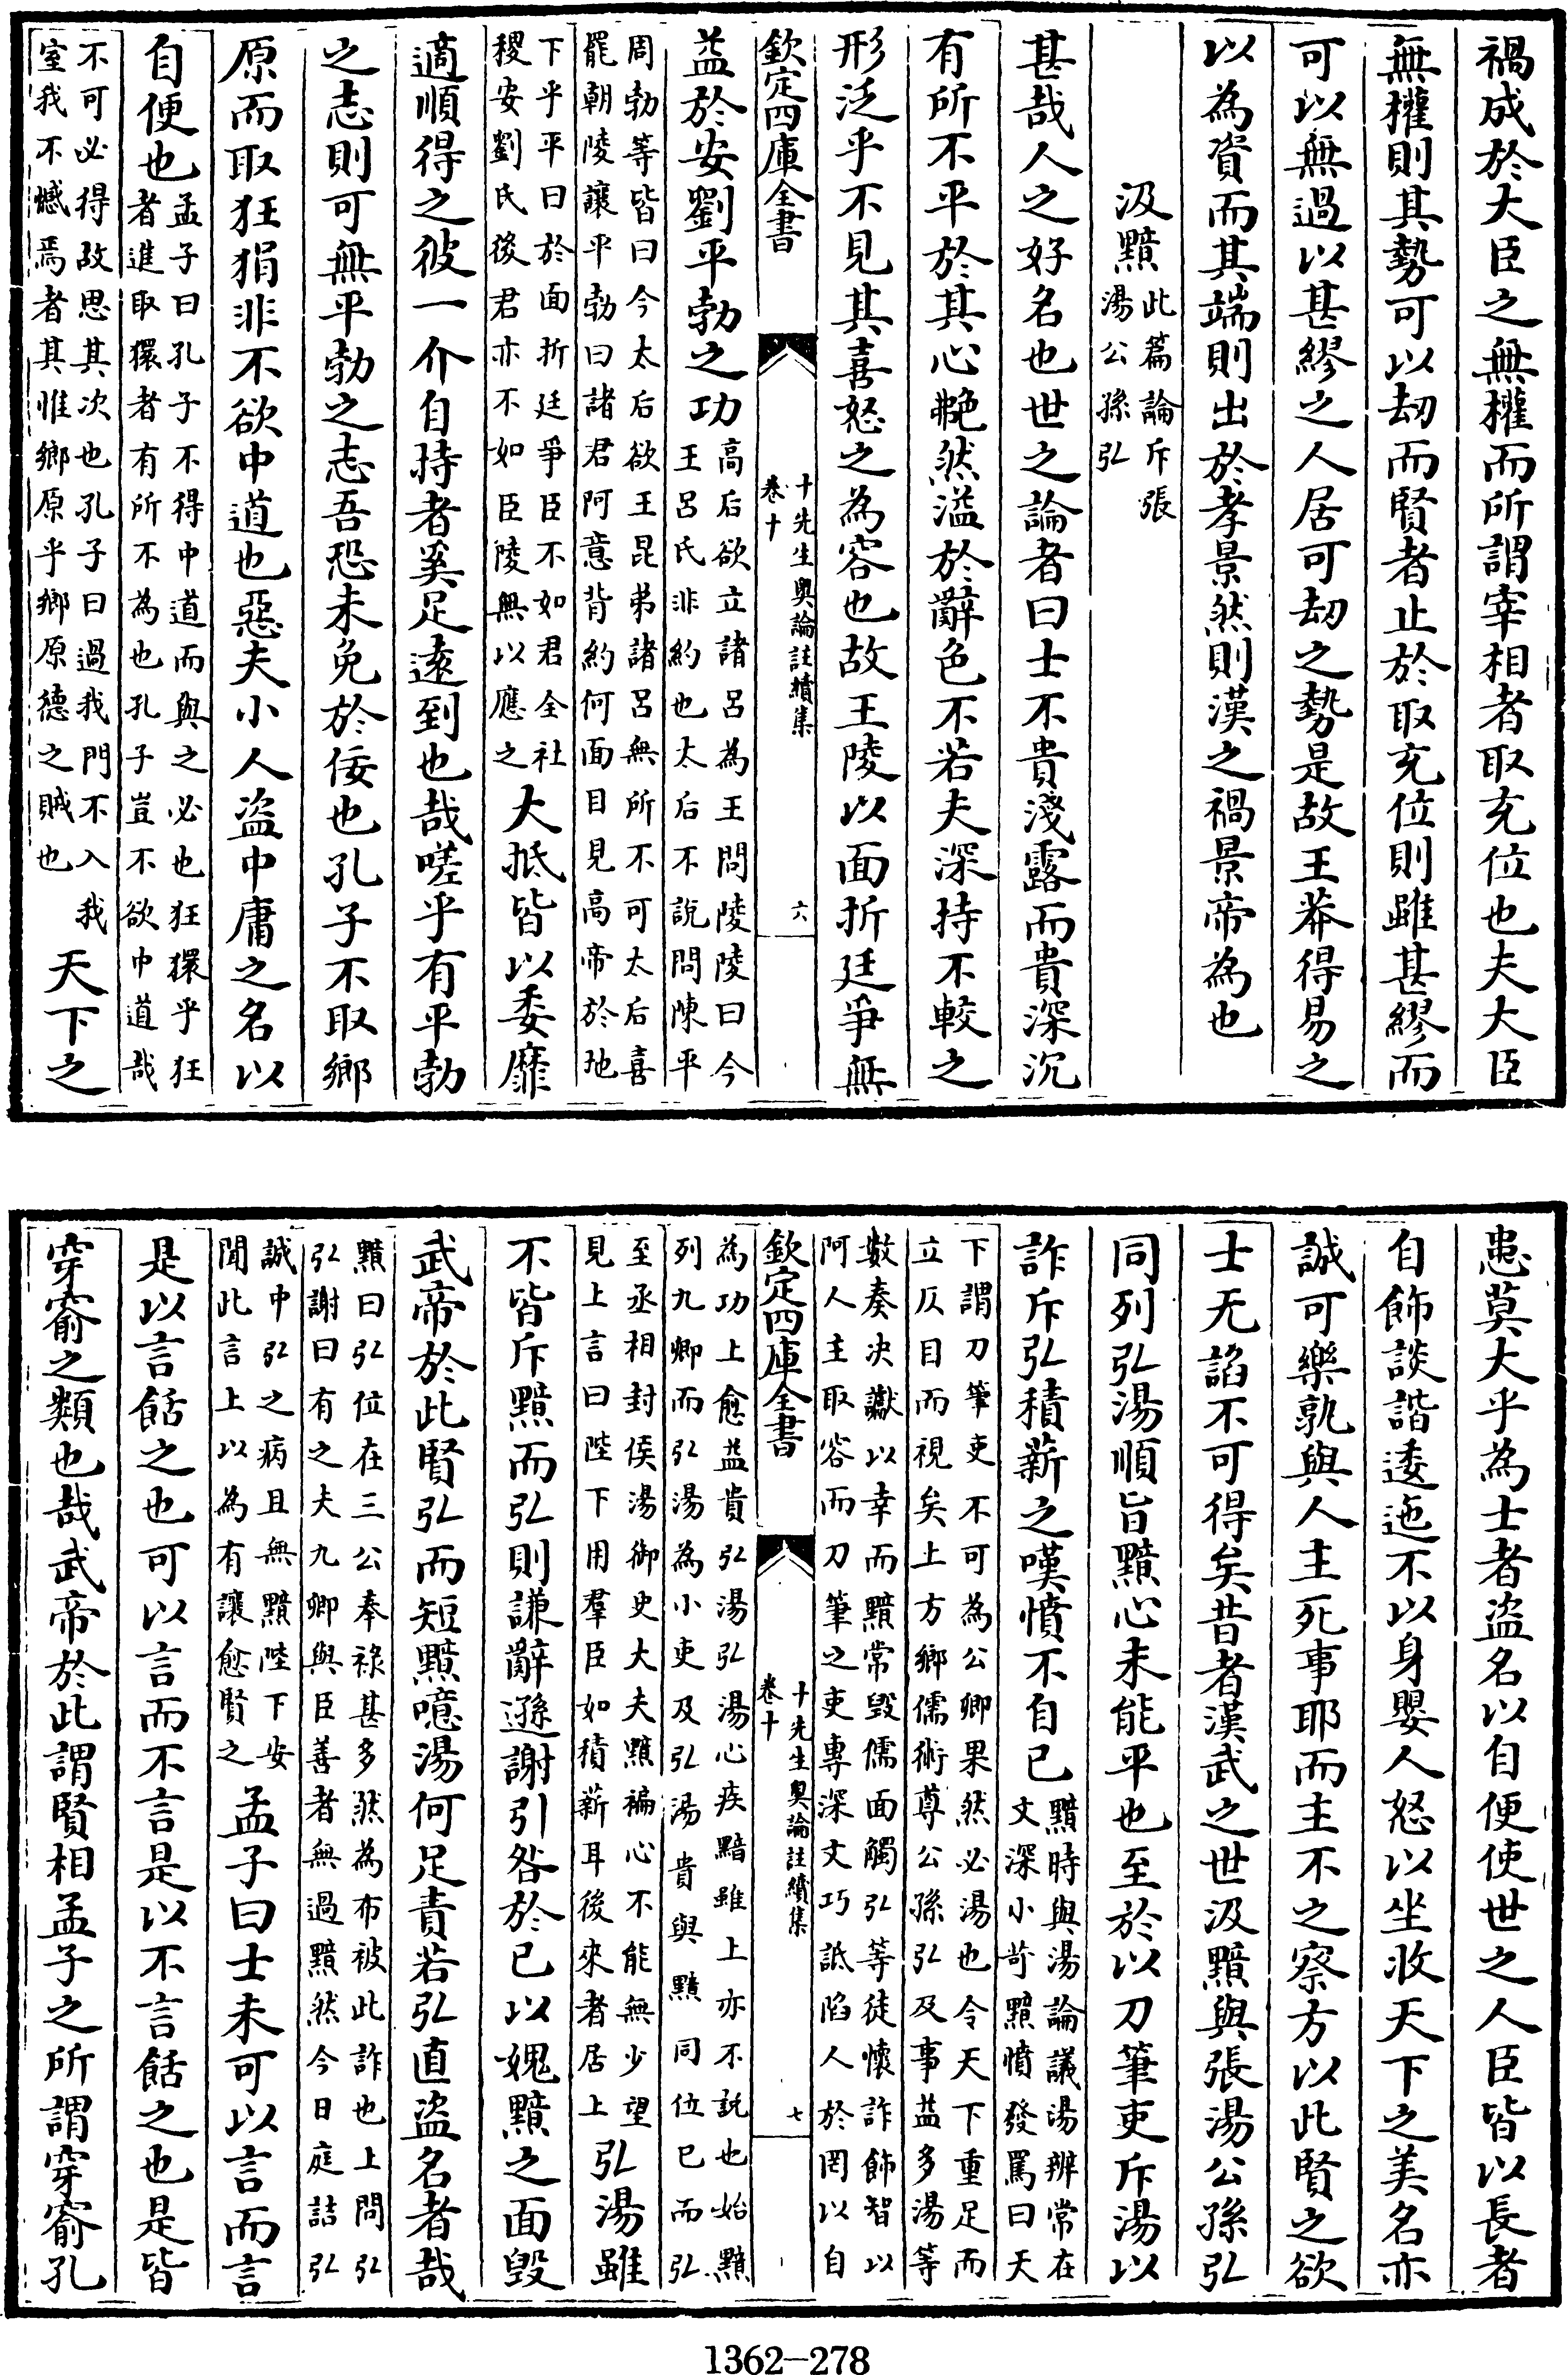 禍成於大臣之無權而所謂宰相者取充位也夫大臣
無權則其勢可以刼而賢者止於取充位則雖甚繆而
可以無過以甚繆之人居可刼之勢是故王莽得易之
以為資而其端則出於孝景然則漢之禍景帝為也
汲黯此篇論斥張湯公孫弘
甚哉人之好名也世之論者曰士不貴淺露而貴深沉
有所不平於其心艴然溢於辭色不若夫深持不較之
形泛乎不見其喜怒之為容也故王陵以面折廷爭無
欽定四庫全書
十先生奧論註續集
卷十
六
益於安劉平勃之功高后欲立諸呂為王問陵陵曰今王呂氏非約也太后不說問陳平
周勃等皆曰今太后欲王昆弟諸呂無所不可太后喜罷朝陵讓平勃曰諸君阿意背約何面目見高帝於地
下乎平曰於面折廷爭臣不如君全社稷安劉氏後君亦不如臣陵無以應之大抵皆以委靡
適順得之彼一介自持者奚足遠到也哉嗟乎有平勃
之志則可無平勃之志吾恐未免於佞也孔子不取鄉
原而取狂狷非不欲中道也惡夫小人盜中庸之名以
自便也孟子曰孔子不得中道而與之必也狂獧乎狂者進取獧者有所不為也孔子豈不欲中道哉
不可必得故思其次也孔子曰過我門不入我室我不憾焉者其惟鄉原乎鄉原德之賊也天下之
患莫大乎為士者盜名以自便使世之人臣皆以長者
自飾談諧逶迤不以身嬰人怒以坐收天下之美名亦
誠可樂孰與人主死事耶而主不之察方以此賢之欲
士无諂不可得矣昔者漢武之世汲黯與張湯公孫弘
同列弘湯順旨黯心未能平也至於以刀筆吏斥湯以
詐斥弘積薪之嘆憤不自已黯時與湯論議湯辨常在文深小苛黯憤發罵曰天
下謂刀筆吏不可為公卿果然必湯也令天下重足而立仄目而視矣上方鄉儒術尊公孫弘及事益多湯等
數奏決讞以幸而黯常毀儒面觸弘等徒懷詐飾智以阿人主取容而刀筆之吏專深文巧詆陷人於罔以自
欽定四庫全書
十先生奧論註續集
卷十
七
為功上愈益貴弘湯弘湯心疾黯雖上亦不說也始黯列九卿而弘湯為小吏及弘湯貴與黯同位已而弘
至丞相封侯湯御史大夫黯褊心不能無少望見上言曰陛下用羣臣如積薪耳後來者居上弘湯雖
不皆斥黯而弘則謙辭遜謝引咎於已以媿黯之面毀
武帝於此賢弘而短黯噫湯何足責若弘直盜名者哉
黯曰弘位在三公奉祿甚多然為布被此詐也上問弘弘謝曰有之夫九卿與臣善者無過黯然今日庭詰弘
誠中弘之病且無黯陛下安聞此言上以為有讓愈賢之孟子曰士未可以言而言
是以言餂之也可以言而不言是以不言餂之也是皆
穿窬之類也哉武帝於此謂賢相孟子之所謂穿窬孔
1362-278